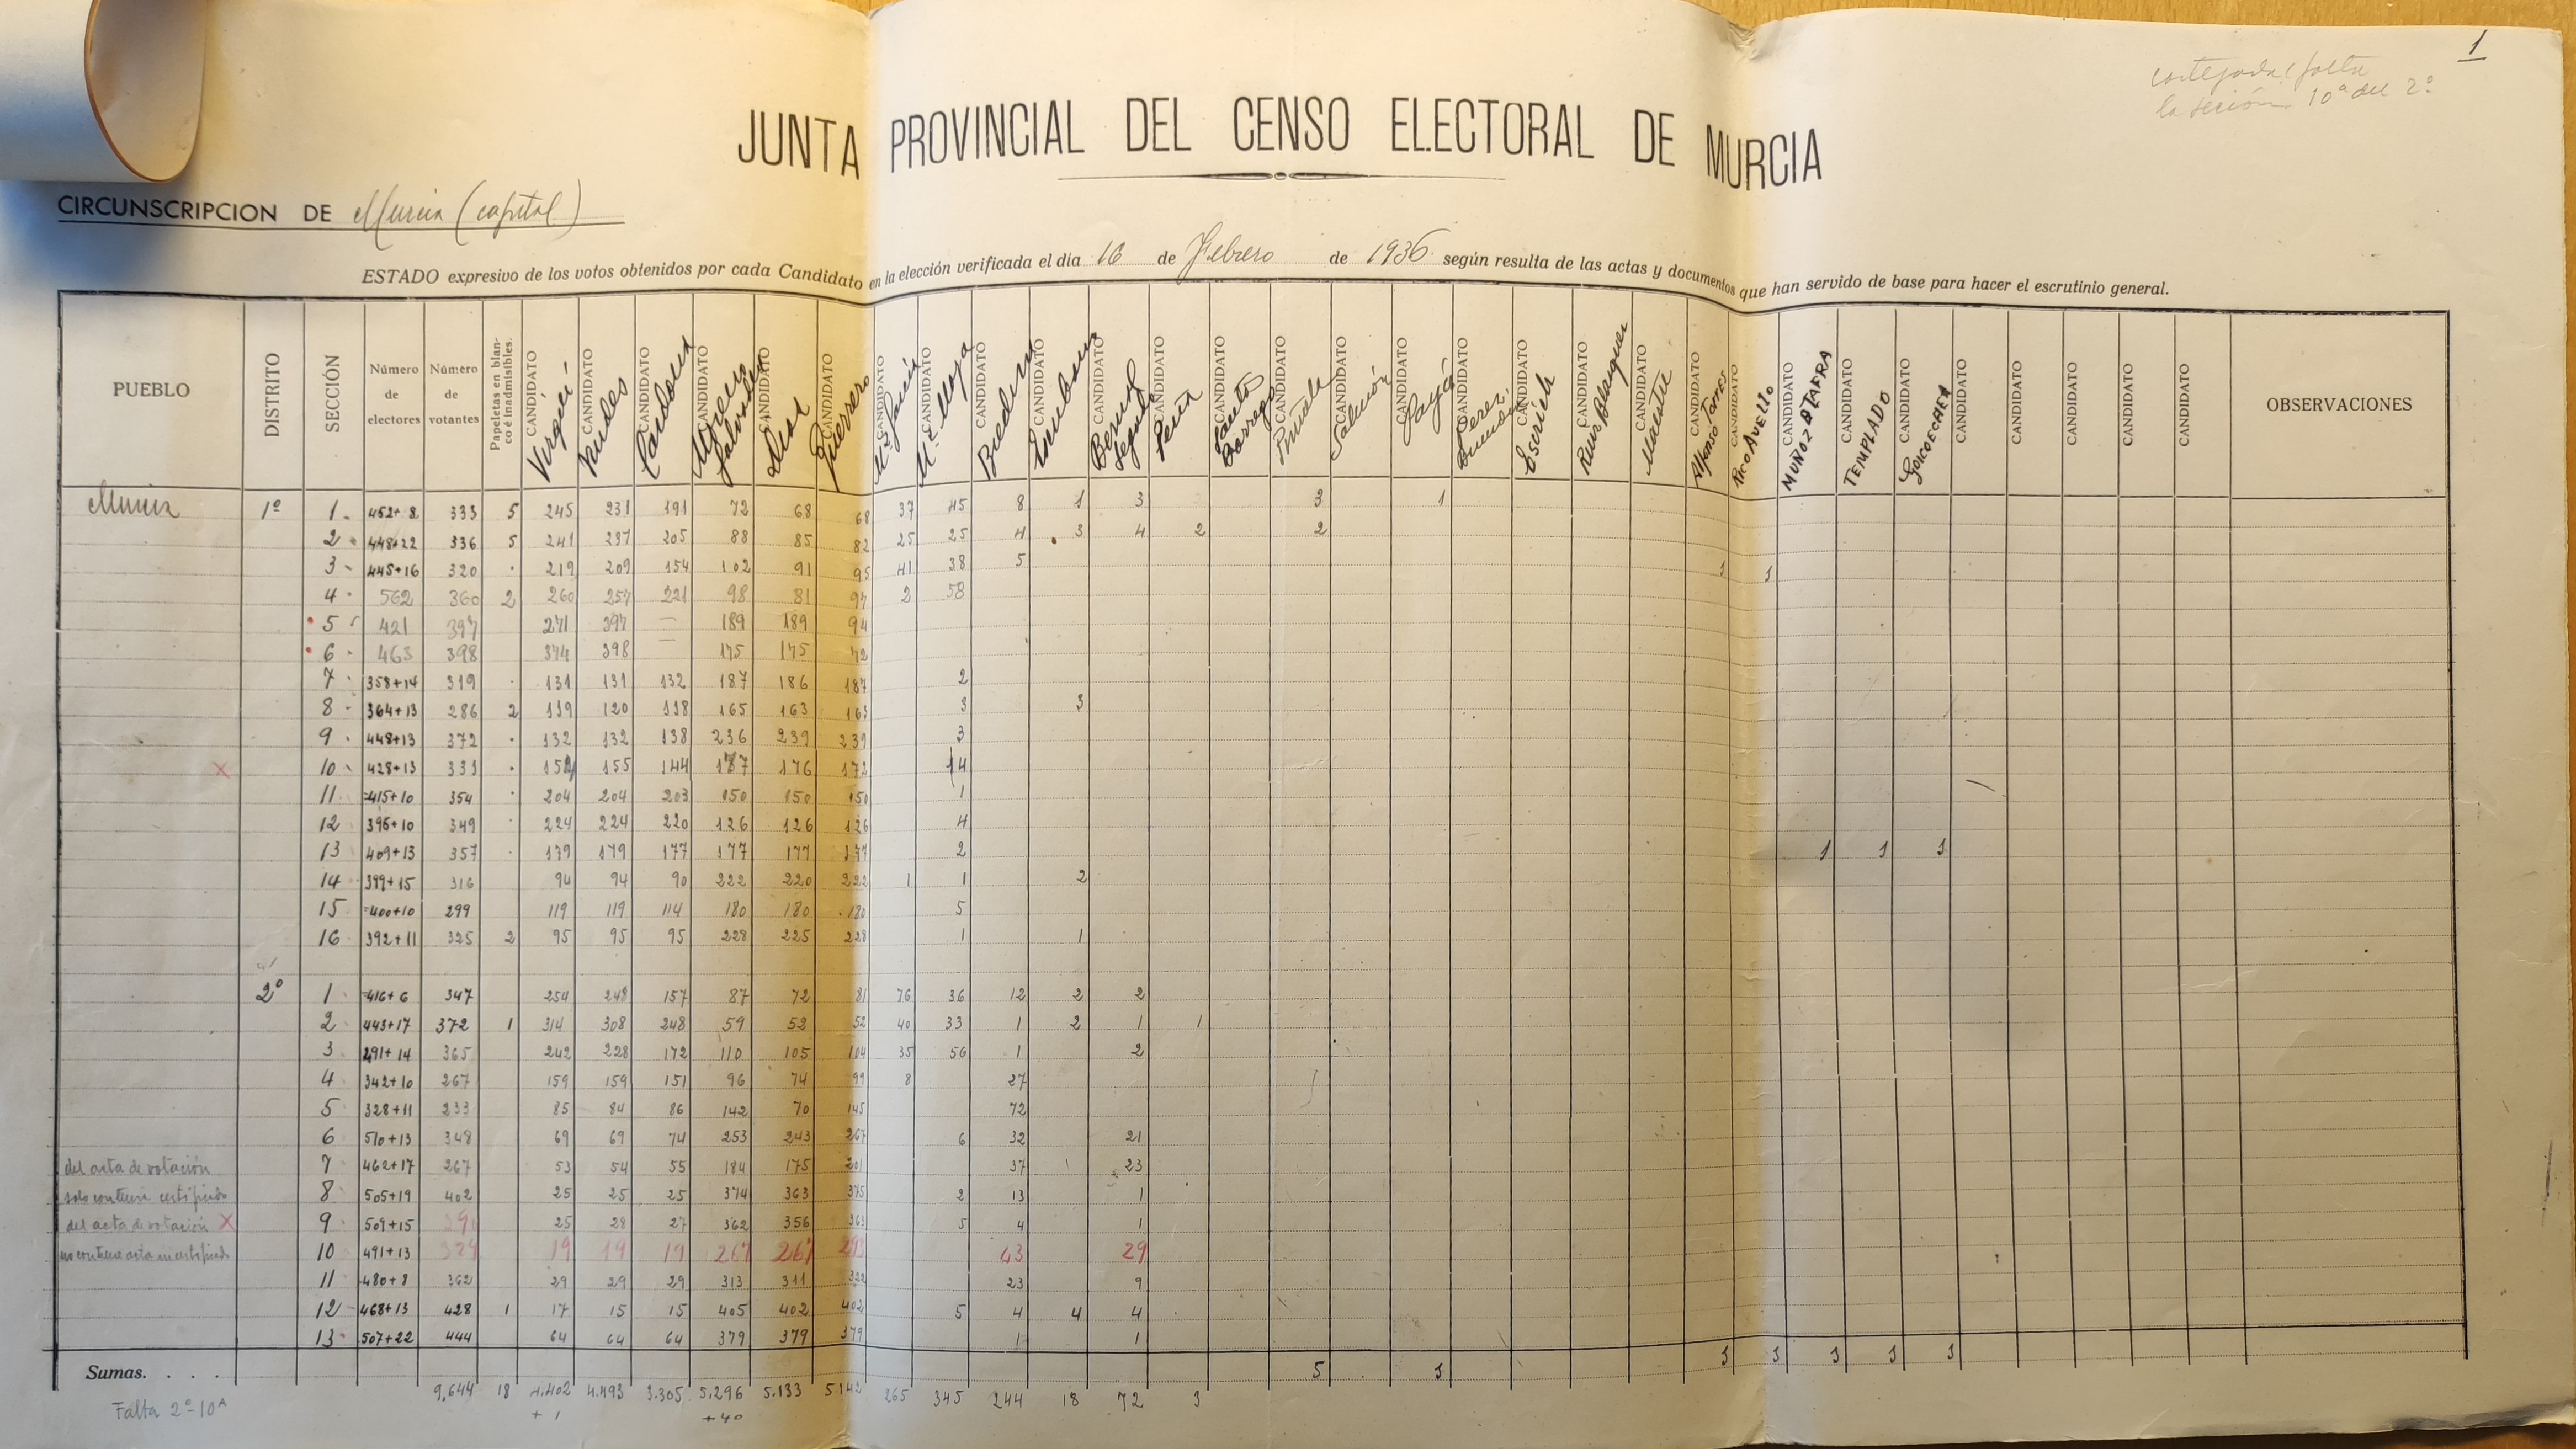 1
cotejada; falta
la seción 10ª del 2º
JUNTA PROVINCIAL DEL CENSO ELECTORAL DE MURCIA
CIRCUNSCRIPCION DE Murcia (capital)
ESTADO expresivo de los votos obtenidos por cada Candidato en la elección verificada el día 16 de Febrero de 1936 según resulta de las actas y documentos que han servido de base para hacer el escrutinio general.
PUEBLO DISTRITO SECCIÓN Número de electores Número de votantes Papeletas en blanco é inadmisibles. CANDIDATO Virgili CANDIDATO CANDIDATO Cardona CANDIDATO Moreno Galvache CANDIDATO CANDIDATO Guerrero CANDIDATO Mz García CANDIDATO Mz Moya CANDIDATO CANDIDATO CANDIDATO Bernal Segado CANDIDATO Peña CANDIDATO Santos Borrego CANDIDATO CANDIDATO Salmerón CANDIDATO Payá CANDIDATO Pérez CANDIDATO Escrich CANDIDATO Ruiz Blazquez CANDIDATO Maestre CANDIDATO Alfonso Torres CANDIDATO RICO AVELLO CANDIDATO MUÑOZ ATAFRA CANDIDATO TEMPLADO CANDIDATO GOICOECHEA CANDIDATO CANDIDATO CANDIDATO CANDIDATO CANDIDATO OBSERVACIONES
Murcia 1º 1 452+8 333 5 245 231 191 72 68 68 37 45 8 1 3 3 1
2 448+22 336 5 241 237 205 88 85 82 25 25 4 3 4 2 2
3 445+16 320 219 209 154 102 91 95 41 38 5 1 1
4 562 360 2 260 257 221 98 81 97 2 58
5 421 397 271 397 — 189 189 94
6 463 398 374 398 — 175 175 72
7 358+14 319 131 131 132 187 186 187 2
8 364+13 286 2 119 120 118 165 163 163 3 3
9 448+13 372 132 132 138 236 239 239 3
10 428+13 333 154 155 144 177 176 172 14
11 415+10 354 204 204 203 150 150 150 1
12 396+10 349 224 224 220 126 126 126 4
13 409+13 357 179 179 177 177 177 177 2 1 1 1
14 399+15 316 94 94 90 222 220 222 1 1 2
15 400+10 299 119 119 114 180 180 180 5
16 392+11 325 2 95 95 95 228 225 228 1 1
2º 1 416+6 347 254 248 157 87 72 81 76 36 12 2 2
2 443+17 372 1 314 308 248 59 52 52 40 33 1 2 1 1
3 491+14 365 242 228 172 110 105 104 35 56 1 2
4 342+10 267 159 159 151 96 74 99 8 27
5 328+11 233 85 84 86 142 70 145 72
6 510+13 348 69 69 74 253 243 267 6 32 21
del acta de votación 7 462+17 267 53 54 55 184 175 201 37 23
solo contiene certificado 8 505+19 402 25 25 25 374 363 375 2 13 1
del acta de votación X 9 509+15 25 28 27 362 356 363 5 4 1
no contiene acta ni certificado 10 491+13 329 19 19 19 267 267 43 29
11 480+8 362 29 29 29 313 311 322 23 9
12 468+13 428 1 17 15 15 405 402 402 5 4 4 4
13 507+22 444 64 64 64 379 379 379 1 1
Sumas. . . . 9,644 18 4.402 4.493 3.305 5.296 5.133 5142 265 345 244 18 72 3 5 1 1 1 1 1 1
+ 1 + 40
Falta 2º-10ª